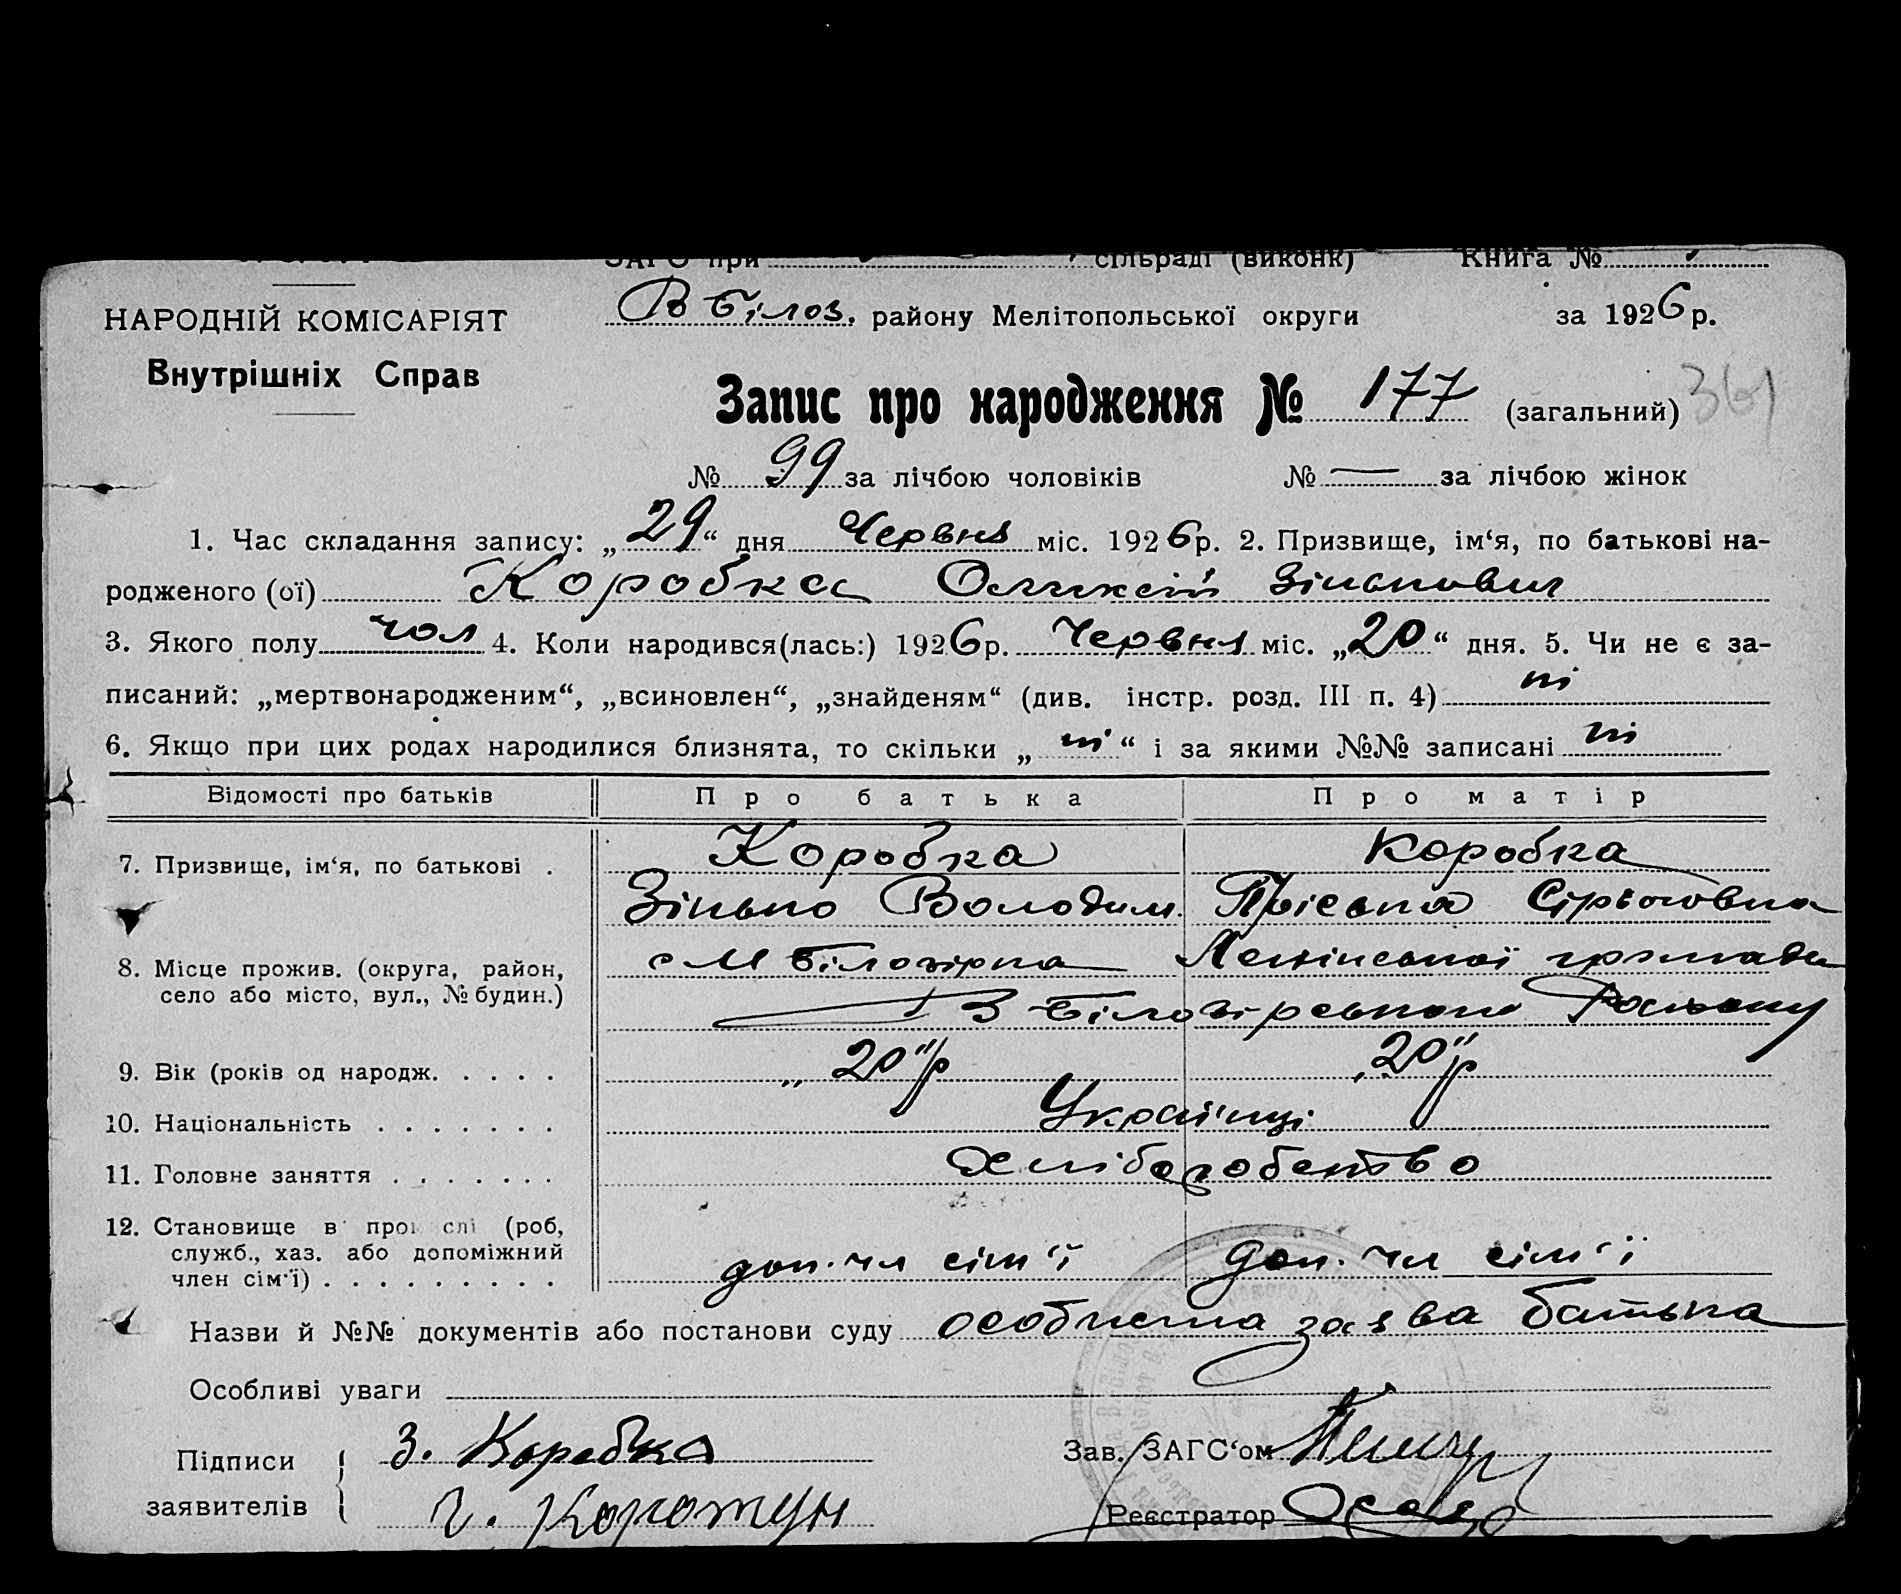 ЗАГС при сільраді (виконк) Книга №
НАРОДНІЙ КОМІСАРІЯТ
Внутрішніх Справ
В Білоз. району Мелітопольської округи за 1926 р.
Запис про народження № 177 (загальний) 361
№ 99 за лічбою чоловіків № — за лічбою жінок
1. Час складання запису: „29“ дня Червня міс. 1926 р. 2. Призвище, ім‘я, по батькові на-
родженого (ої) Коробка Олексій Зінькович
3. Якого полу чол 4. Коли народився(лась:) 1926 р. Червня міс. „20“ дня. 5. Чи не є за-
писаний: „мертвонародженим“, „всиновлен“, „знайденям“ (див. інстр. розд. III п. 4) ні
6. Якщо при цих родах народилися близнята, то скільки „ ні “ і за якими №№ записані ні
Відомості про батьків Про батька Про матір
7. Призвище, ім‘я, по батькові . Коробка Коробка
Зінько Володим.
8. Місце прожив. (округа, район, с М Білозірка громади
село або місто, вул., № будин.) В Білозірського Району
9. Вік (років од народж. . . . . „20“ р „20“ р
10. Національність . . . . . . . Українці
11. Головне заняття . . . . . . . Хліборобство
12. Становище в промислі (роб, служб., хаз. або допоміжний член сім‘ї) . . . . . . . . . доп. чл сім‘ї доп. чл сім‘ї
Назви й №№ документів або постанови суду особиста заява батька
Особливі уваги
Підписи З. Коробка Зав. ЗАГС‘ом
заявителів Реєстратор